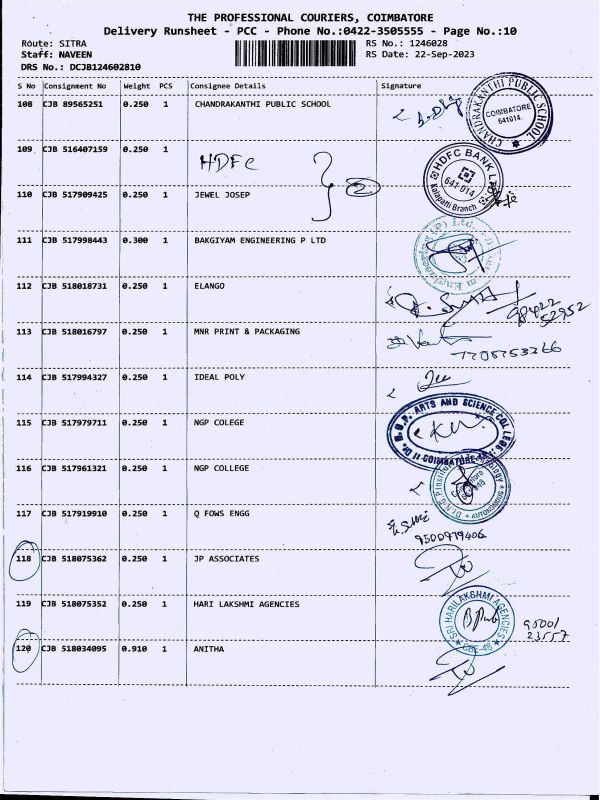 THE PROFESSIONAL COURIERS, COIMBATORE
Delivery Runsheet - PCC - Phone No.:0422-3505555 - Page No.:10
Route: SITRA RS No.: 1246028
Staff: NAVEEN RS Date: 22-Sep-2023
DRS No.: DCJB124602810
S No Consignment No Weight PCS Consignee Details Signature
108 CJB 89565251 0.250 1 CHANDRAKANTHI PUBLIC SCHOOL
CHANDRAKANTHI PUBLIC SCHOOL
COIMBATORE
641014
109 CJB 516407159 0.250 1 HDFC
HDFC BANK
641 014
Kalapatti Branch
2
110 CJB 517909425 0.250 1 JEWEL JOSEP
111 CJB 517998443 0.300 1 BAKGIYAM ENGINEERING P LTD
112 CJB 518018731 0.250 1 ELANGO
98422
52952
113 CJB 518016797 0.250 1 MNR PRINT & PACKAGING
114 CJB 517994327 0.250 1 IDEAL POLY
115 CJB 517979711 0.250 1 NGP COLEGE
ARTS AND SCIENCE COLLEGE
COIMBATORE-48
116 CJB 517961321 0.250 1 NGP COLLEGE
AUTONOMOUS
117 CJB 517919910 0.250 1 Q FOWS ENGG
9500979406
118 CJB 518075362 0.250 1 JP ASSOCIATES
119 CJB 518075352 0.250 1 HARI LAKSHMI AGENCIES
SRI HARILAKSHMI AGENCIES
CBE-48
95001
23557
120 CJB 518034095 0.910 1 ANITHA